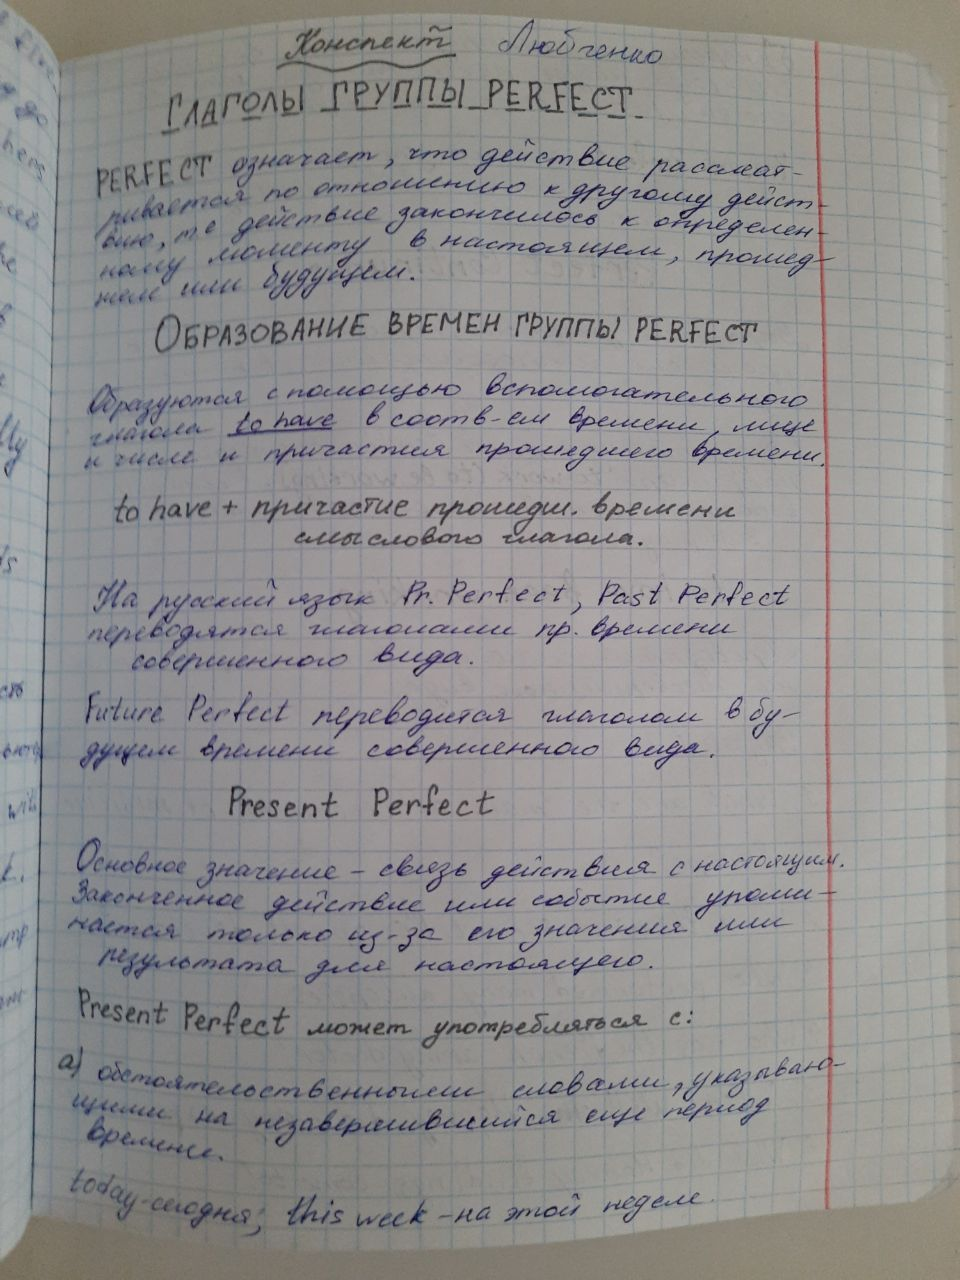 Конспект Любченко
ГЛАГОЛЫ ГРУППЫ PERFECT.
PERFECT означает, что действие рассмат-
ривается по отношению к другому дейст-
вию, т.е действие закончилось к определен-
ному моменту в настоящем, прошед-
шем или будущем.
ОБРАЗОВАНИЕ ВРЕМЕН ГРУППЫ PERFECT
Образуются с помощью вспомогательного
глагола to have в соотв-ем времени, лице
и числе и причастия прошедшего времени.
to have + причастие прошедш. времени
смыслового глагола.
На русский язык Pr. Perfect, Past Perfect
переводятся глаголами пр. времени
совершенного вида.
Future Perfect переводится глаголом в бу-
дущем времени совершенного вида.
Present Perfect
Основное значение - связь действия с настоящим.
Законченное действие или событие упоми-
нается только из-за его значения или
результата для настоящего.
Present Perfect может употребляться с:
а) обстоятельственными словами, указываю-
щими на незавершившийся еще период
времени.
today-сегодня; this week-на этой неделе